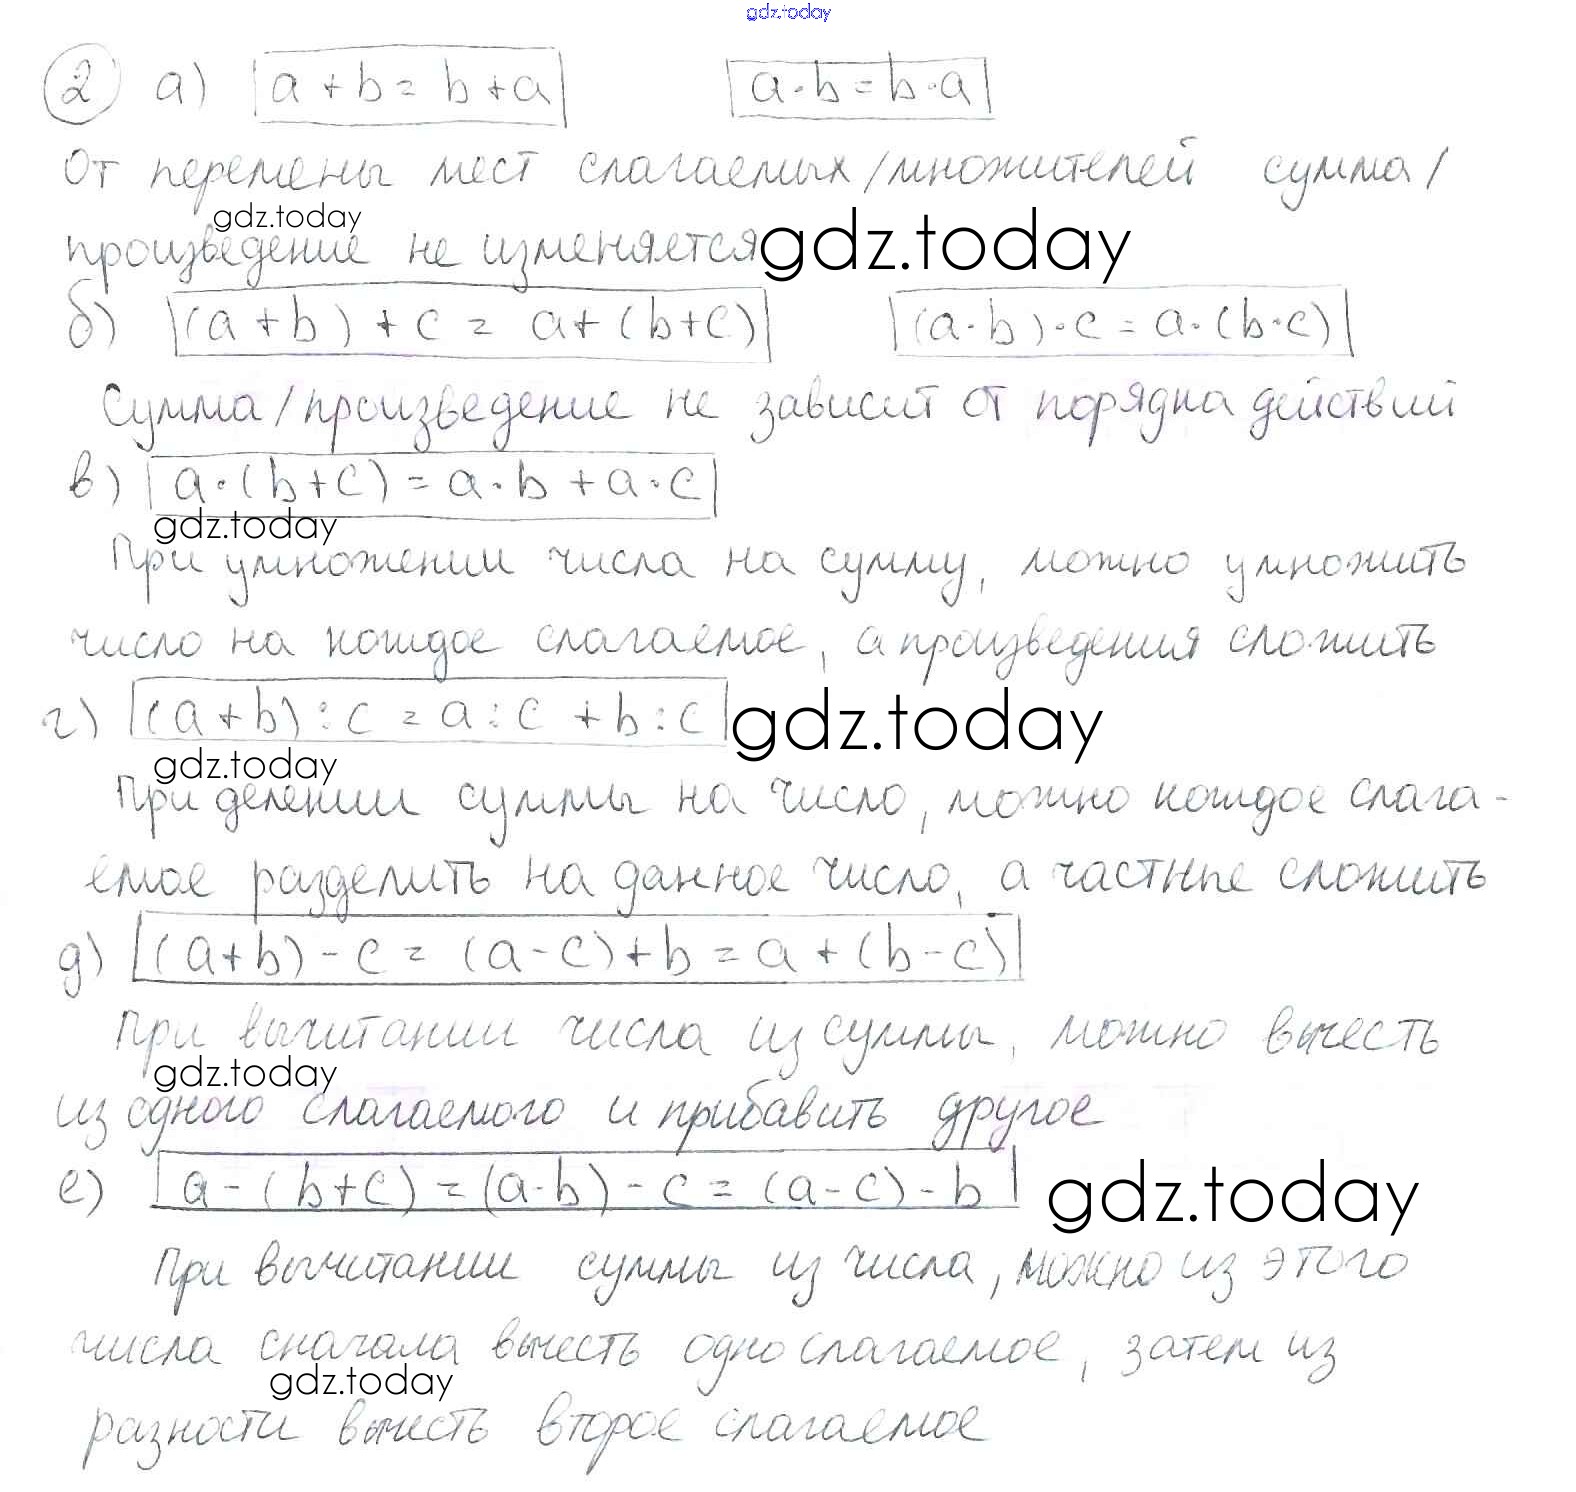 gdz.today
2 а) a+b=b+a a·b=b·a
От перемены мест слагаемых/множителей сумма/
gdz.today
произведение не изменяется
gdz.today
б) (a+b)+c = a+(b+c) (a·b)·c=a·(b·c)
Сумма/произведение не зависит от порядка действий
в) a·(b+c)=a·b+a·c
gdz.today
При умножении числа на сумму, можно умножить
число на каждое слагаемое, а произведения сложить
г) (a+b):c=a:c+b:c
gdz.today
gdz.today
При делении суммы на число, можно каждое слага-
емое разделить на данное число, а частные сложить
д) (a+b)-c=(a-c)+b=a+(b-c)
При вычитании числа из суммы, можно вычесть
gdz.today
из одного слагаемого и прибавить другое
е) a-(b+c)=(a-b)-c=(a-c)-b
gdz.today
При вычитании суммы из числа, можно из этого
числа сначала вычесть одно слагаемое, затем из
gdz.today
разности вычесть второе слагаемое